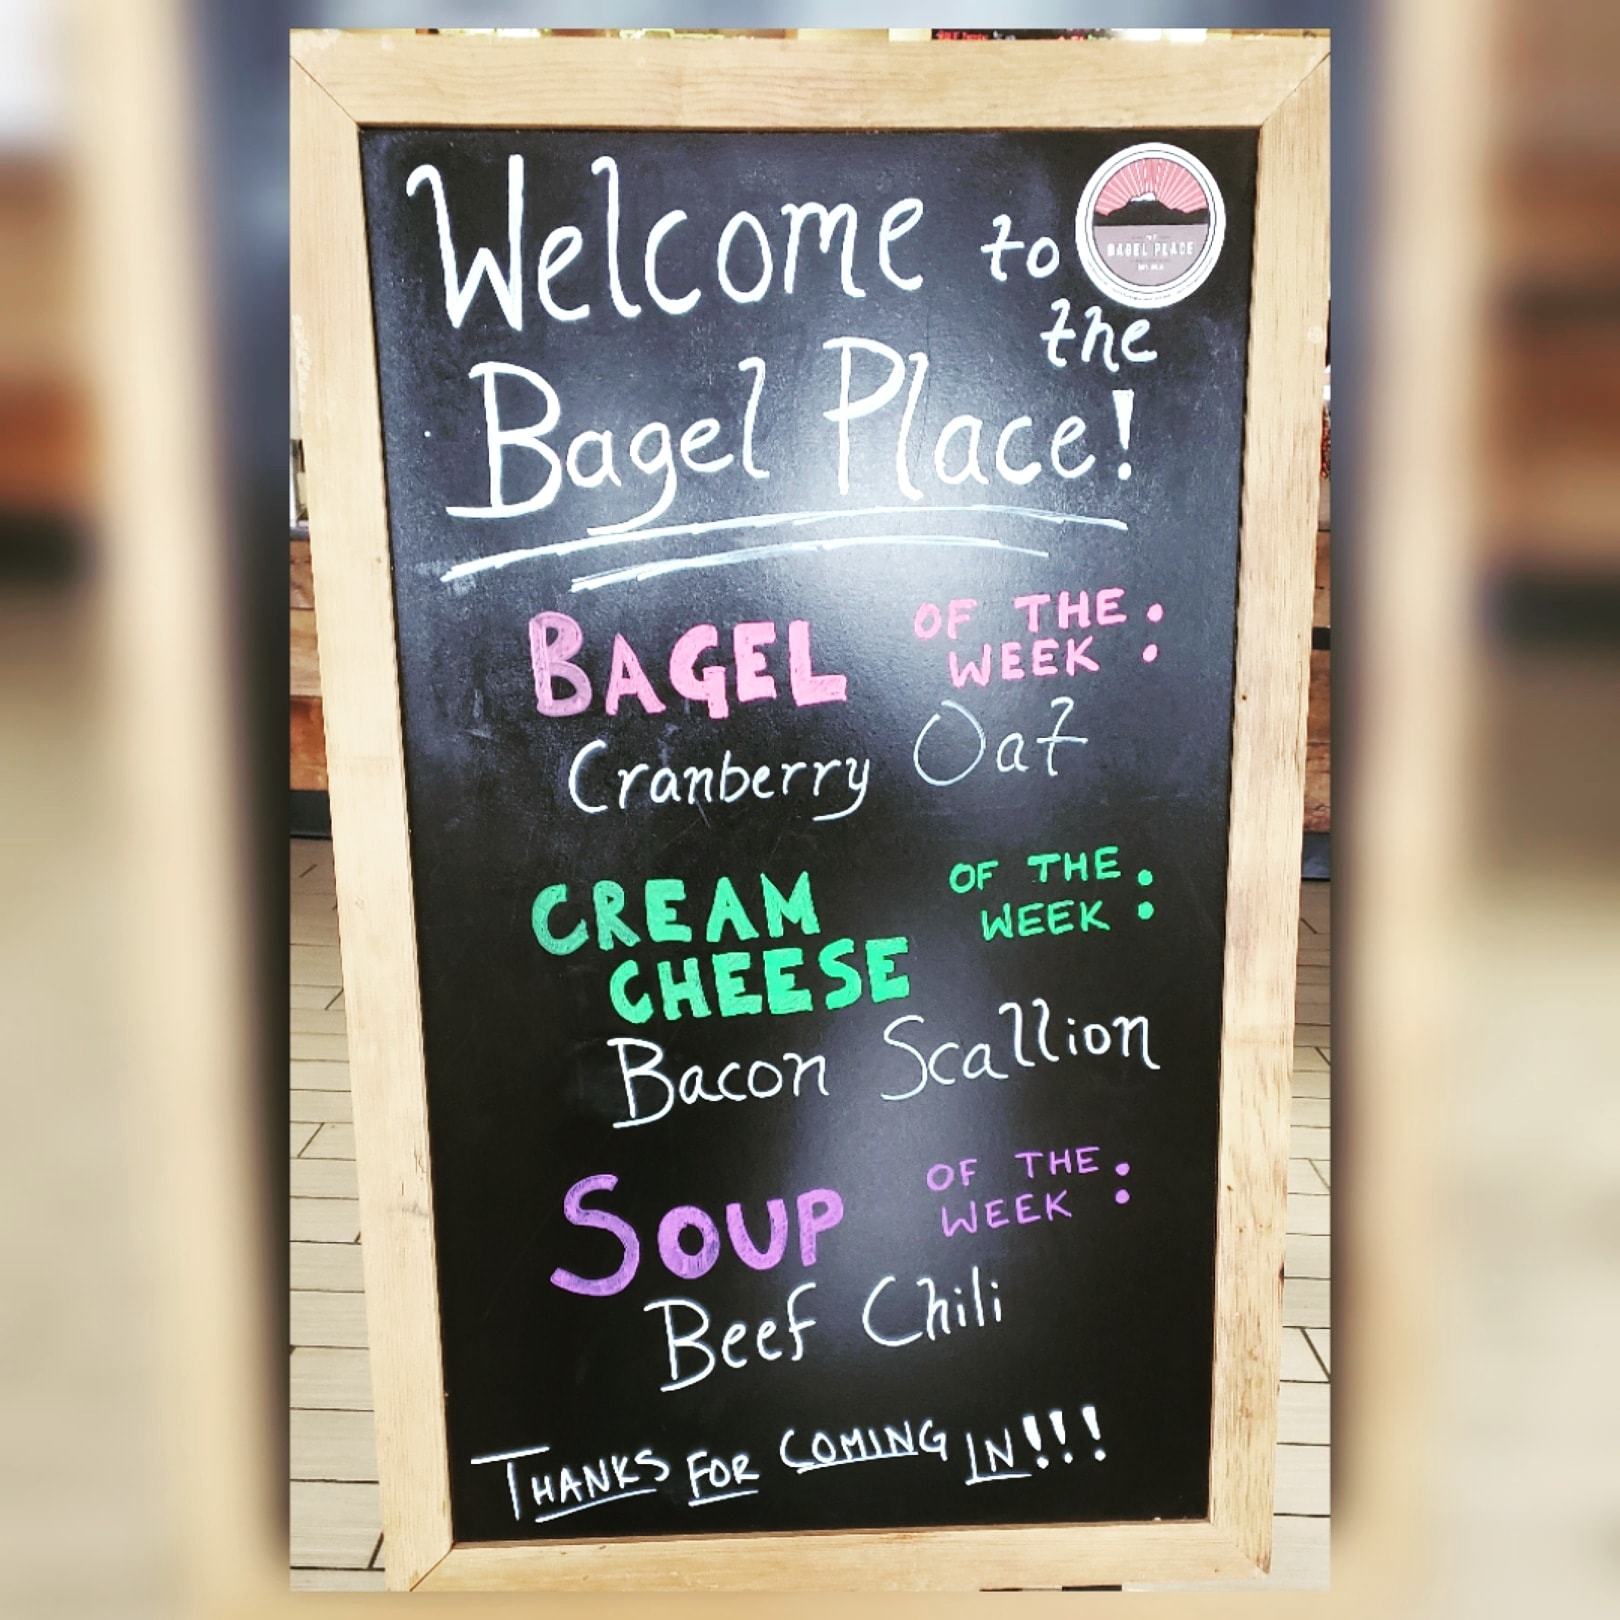 Welcome to
the
Bagel Place!
BAGEL PLACE
BAGEL OF THE
WEEK:
Cranberry Oat
CREAM OF THE
CHEESE WEEK:
Bacon Scallion
SOUP OF THE
WEEK:
Beef Chili
THANKS FOR COMING IN!!!